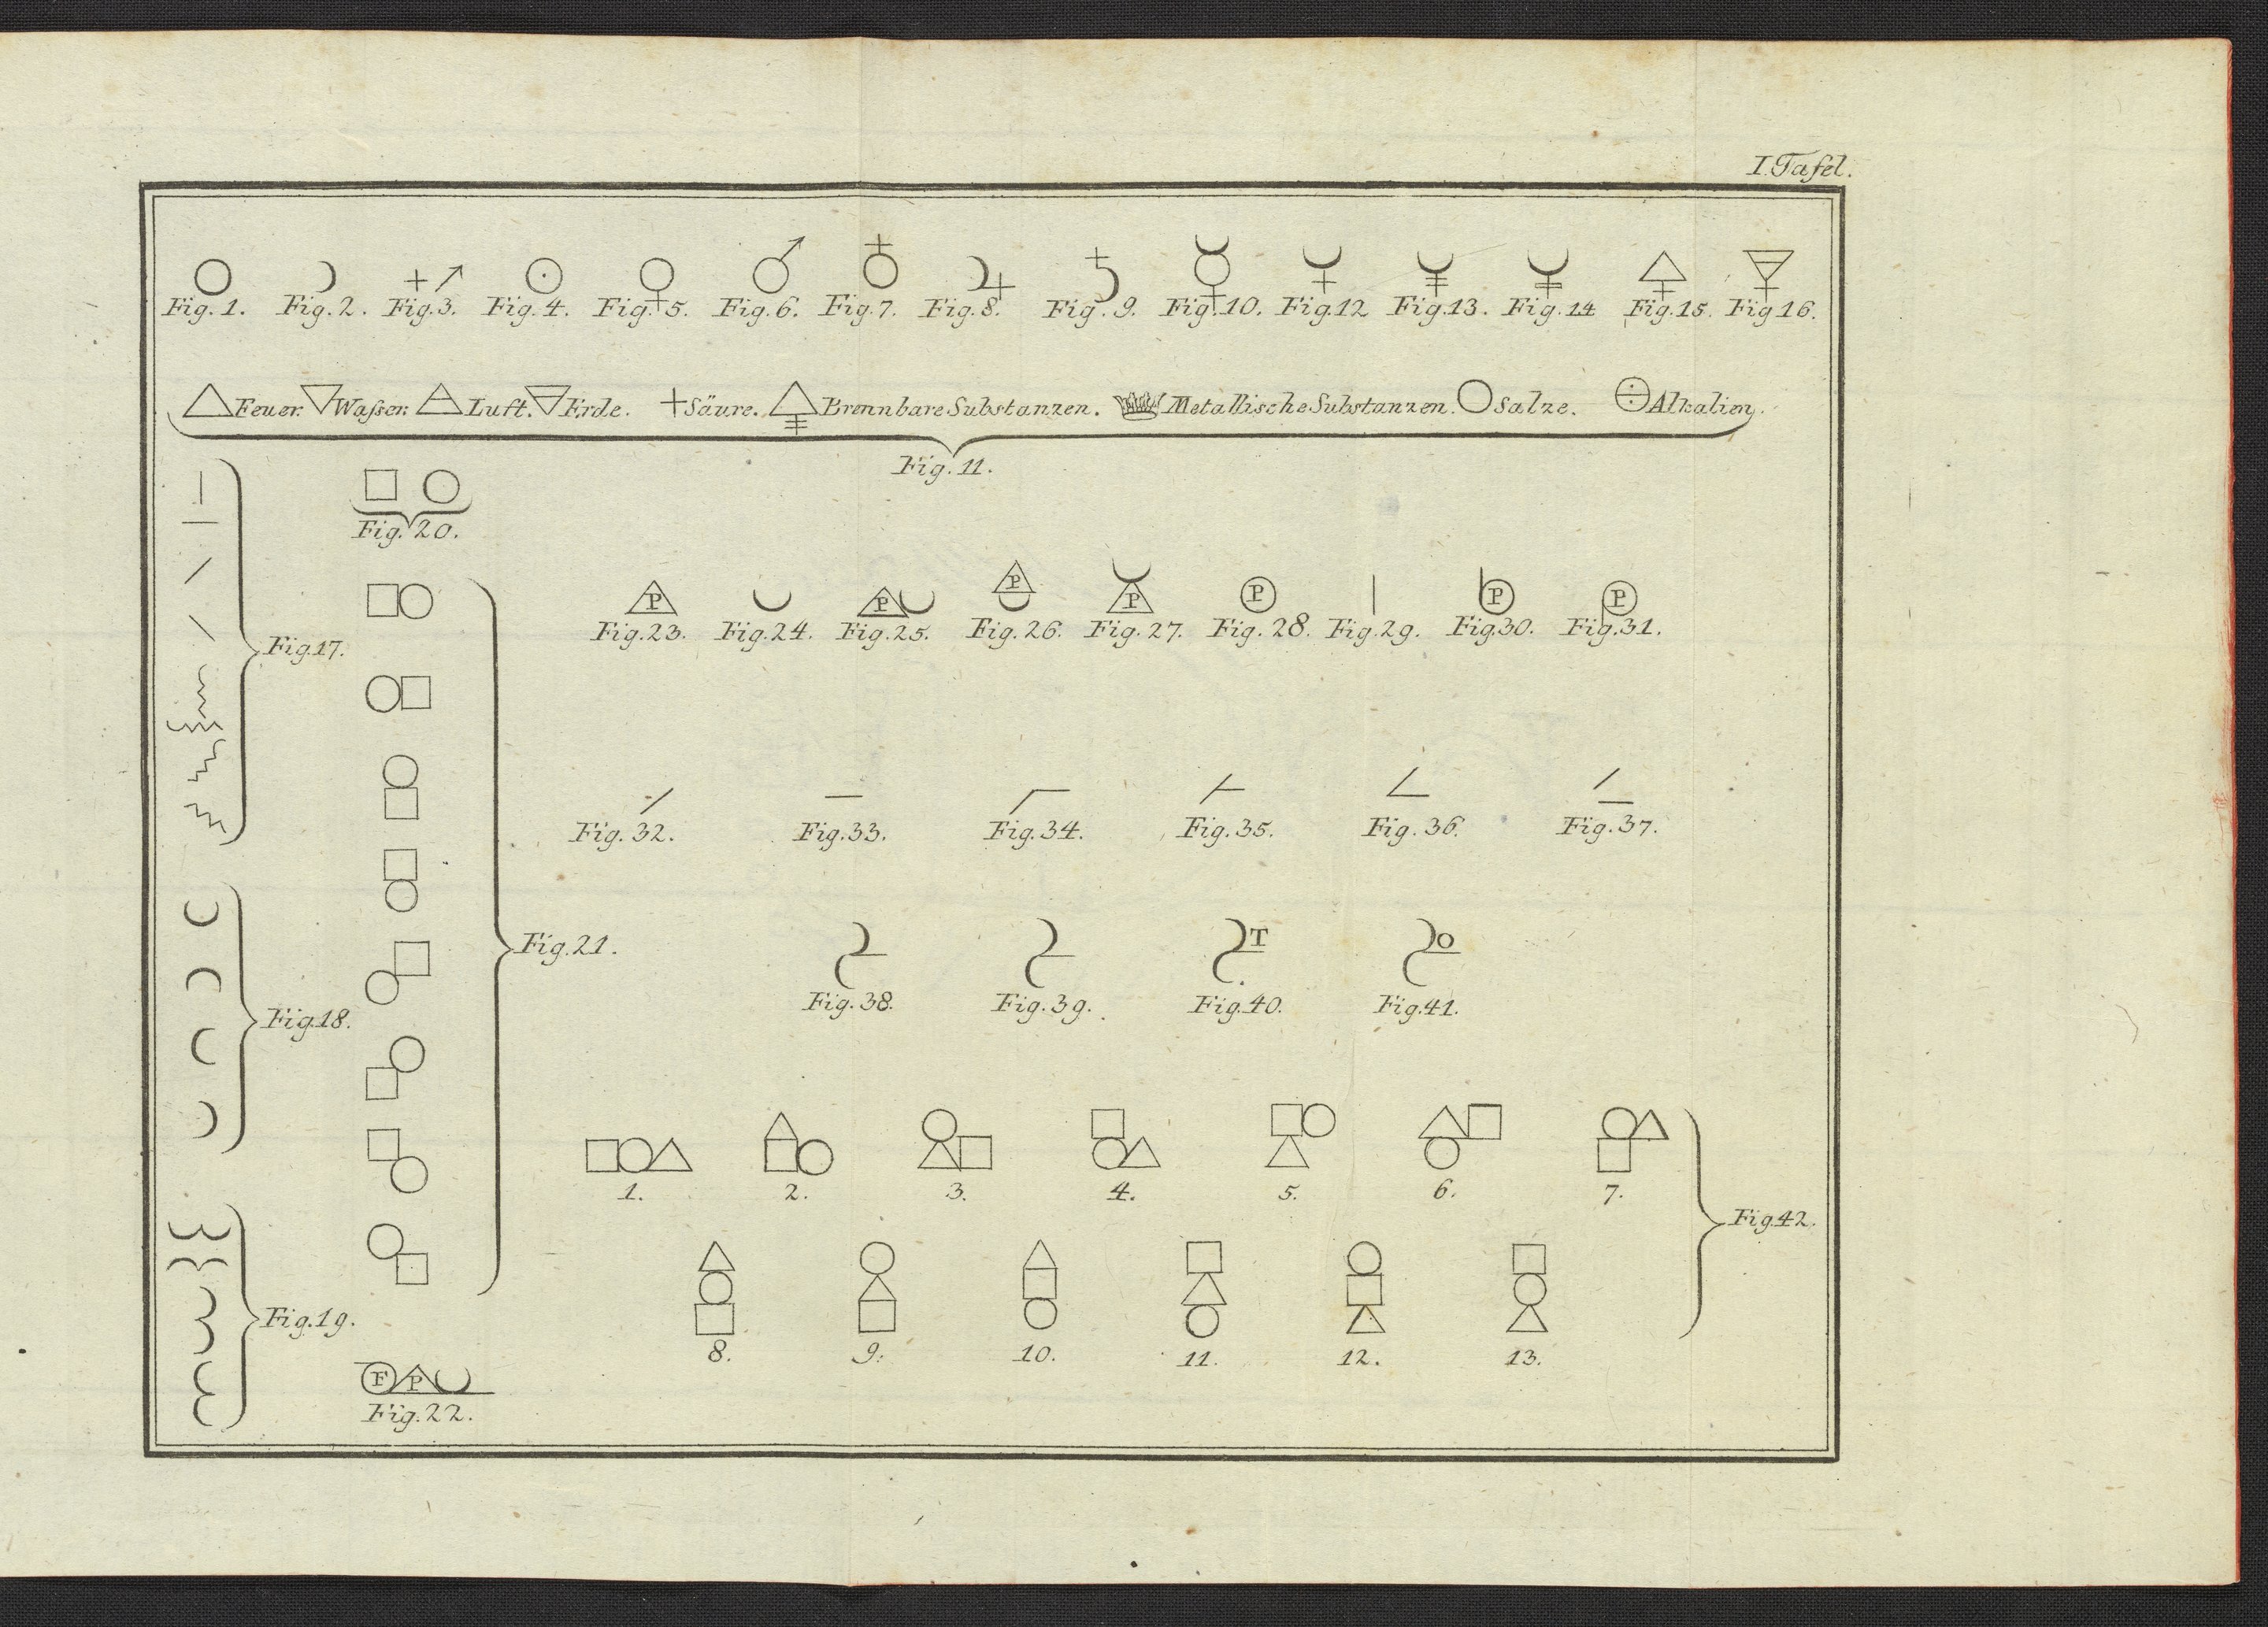 I. Tafel.
Fig. 1. Fig. 2. Fig. 3. Fig. 4. Fig. 5. Fig. 6. Fig. 7. Fig. 8. Fig. 9. Fig. 10. Fig. 12 Fig. 13. Fig. 14 Fig. 15. Fig 16.
Feuer. Waſser. Luft. Erde. Säure. Brennbare Substanzen. Metallische Substanzen. Salze. Alkalien.
Fig. 11.
Fig. 20.
P P P P P P P
Fig. 23. Fig. 24. Fig. 25. Fig. 26. Fig. 27. Fig. 28. Fig. 29. Fig. 30. Fig. 31.
Fig. 17.
Fig. 32. Fig. 33. Fig. 34. Fig. 35. Fig. 36. Fig. 37.
T O
Fig. 21.
Fig. 38. Fig. 39. Fig. 40. Fig. 41.
Fig. 18.
1. 2. 3. 4. 5. 6. 7.
Fig. 42.
Fig. 19.
8. 9. 10. 11. 12. 13.
F P
Fig. 22.